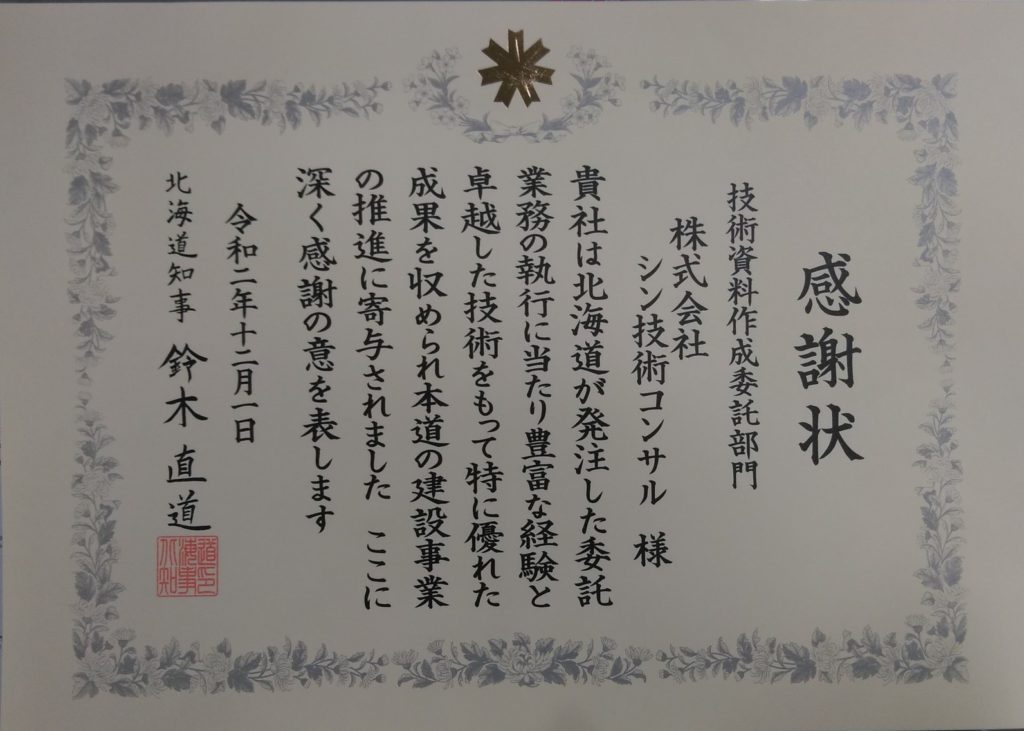 感謝状
技術資料作成委託部門
株式会社
シン技術コンサル 様
貴社は北海道が発注した委託
業務の執行に当たり豊富な経験と
卓越した技術をもって特に優れた
成果を収められ本道の建設事業
の推進に寄与されました ここに
深く感謝の意を表します
令和二年十二月一日
北海道知事 鈴木直道